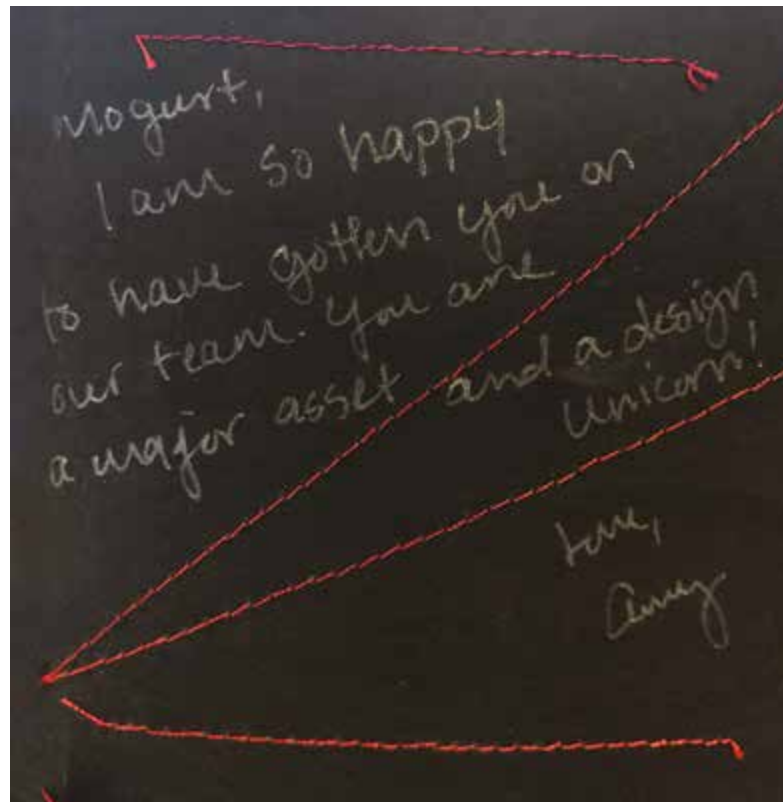 Mogurt,
I am so happy
to have gotten you on
our team. You are
a major asset and a design
Unicorn!
Love,
Amy